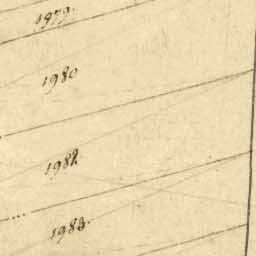 1979.
1980
1982.
1983.